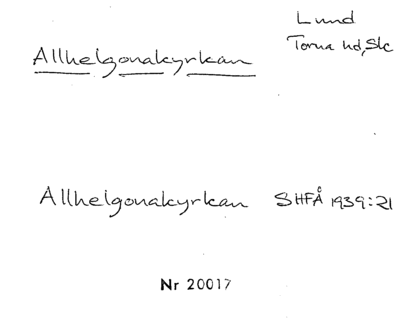 Lund
Torna hd, Skc
Allhelgonakyrkan
Allhelgonakyrkan SHFÅ 1939:21
Nr 20017